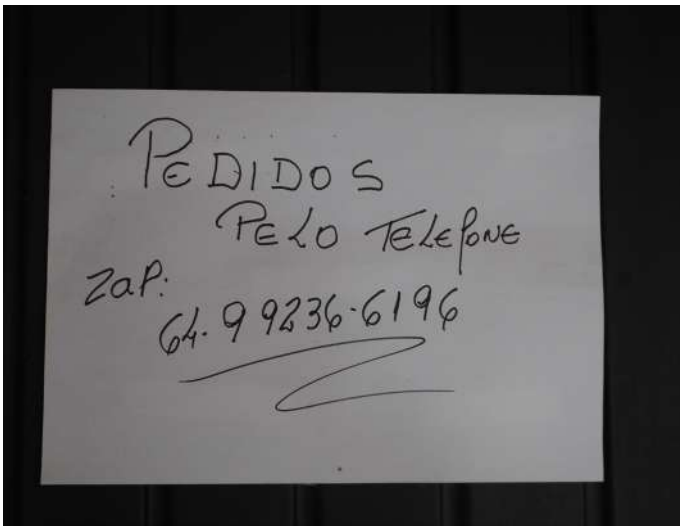 PEDIDOS
PELO TELEFONE
ZAP:
64.9 9236-6196